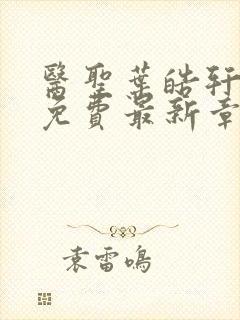 醫聖葉皓軒
免費最新章
袁雷鳴